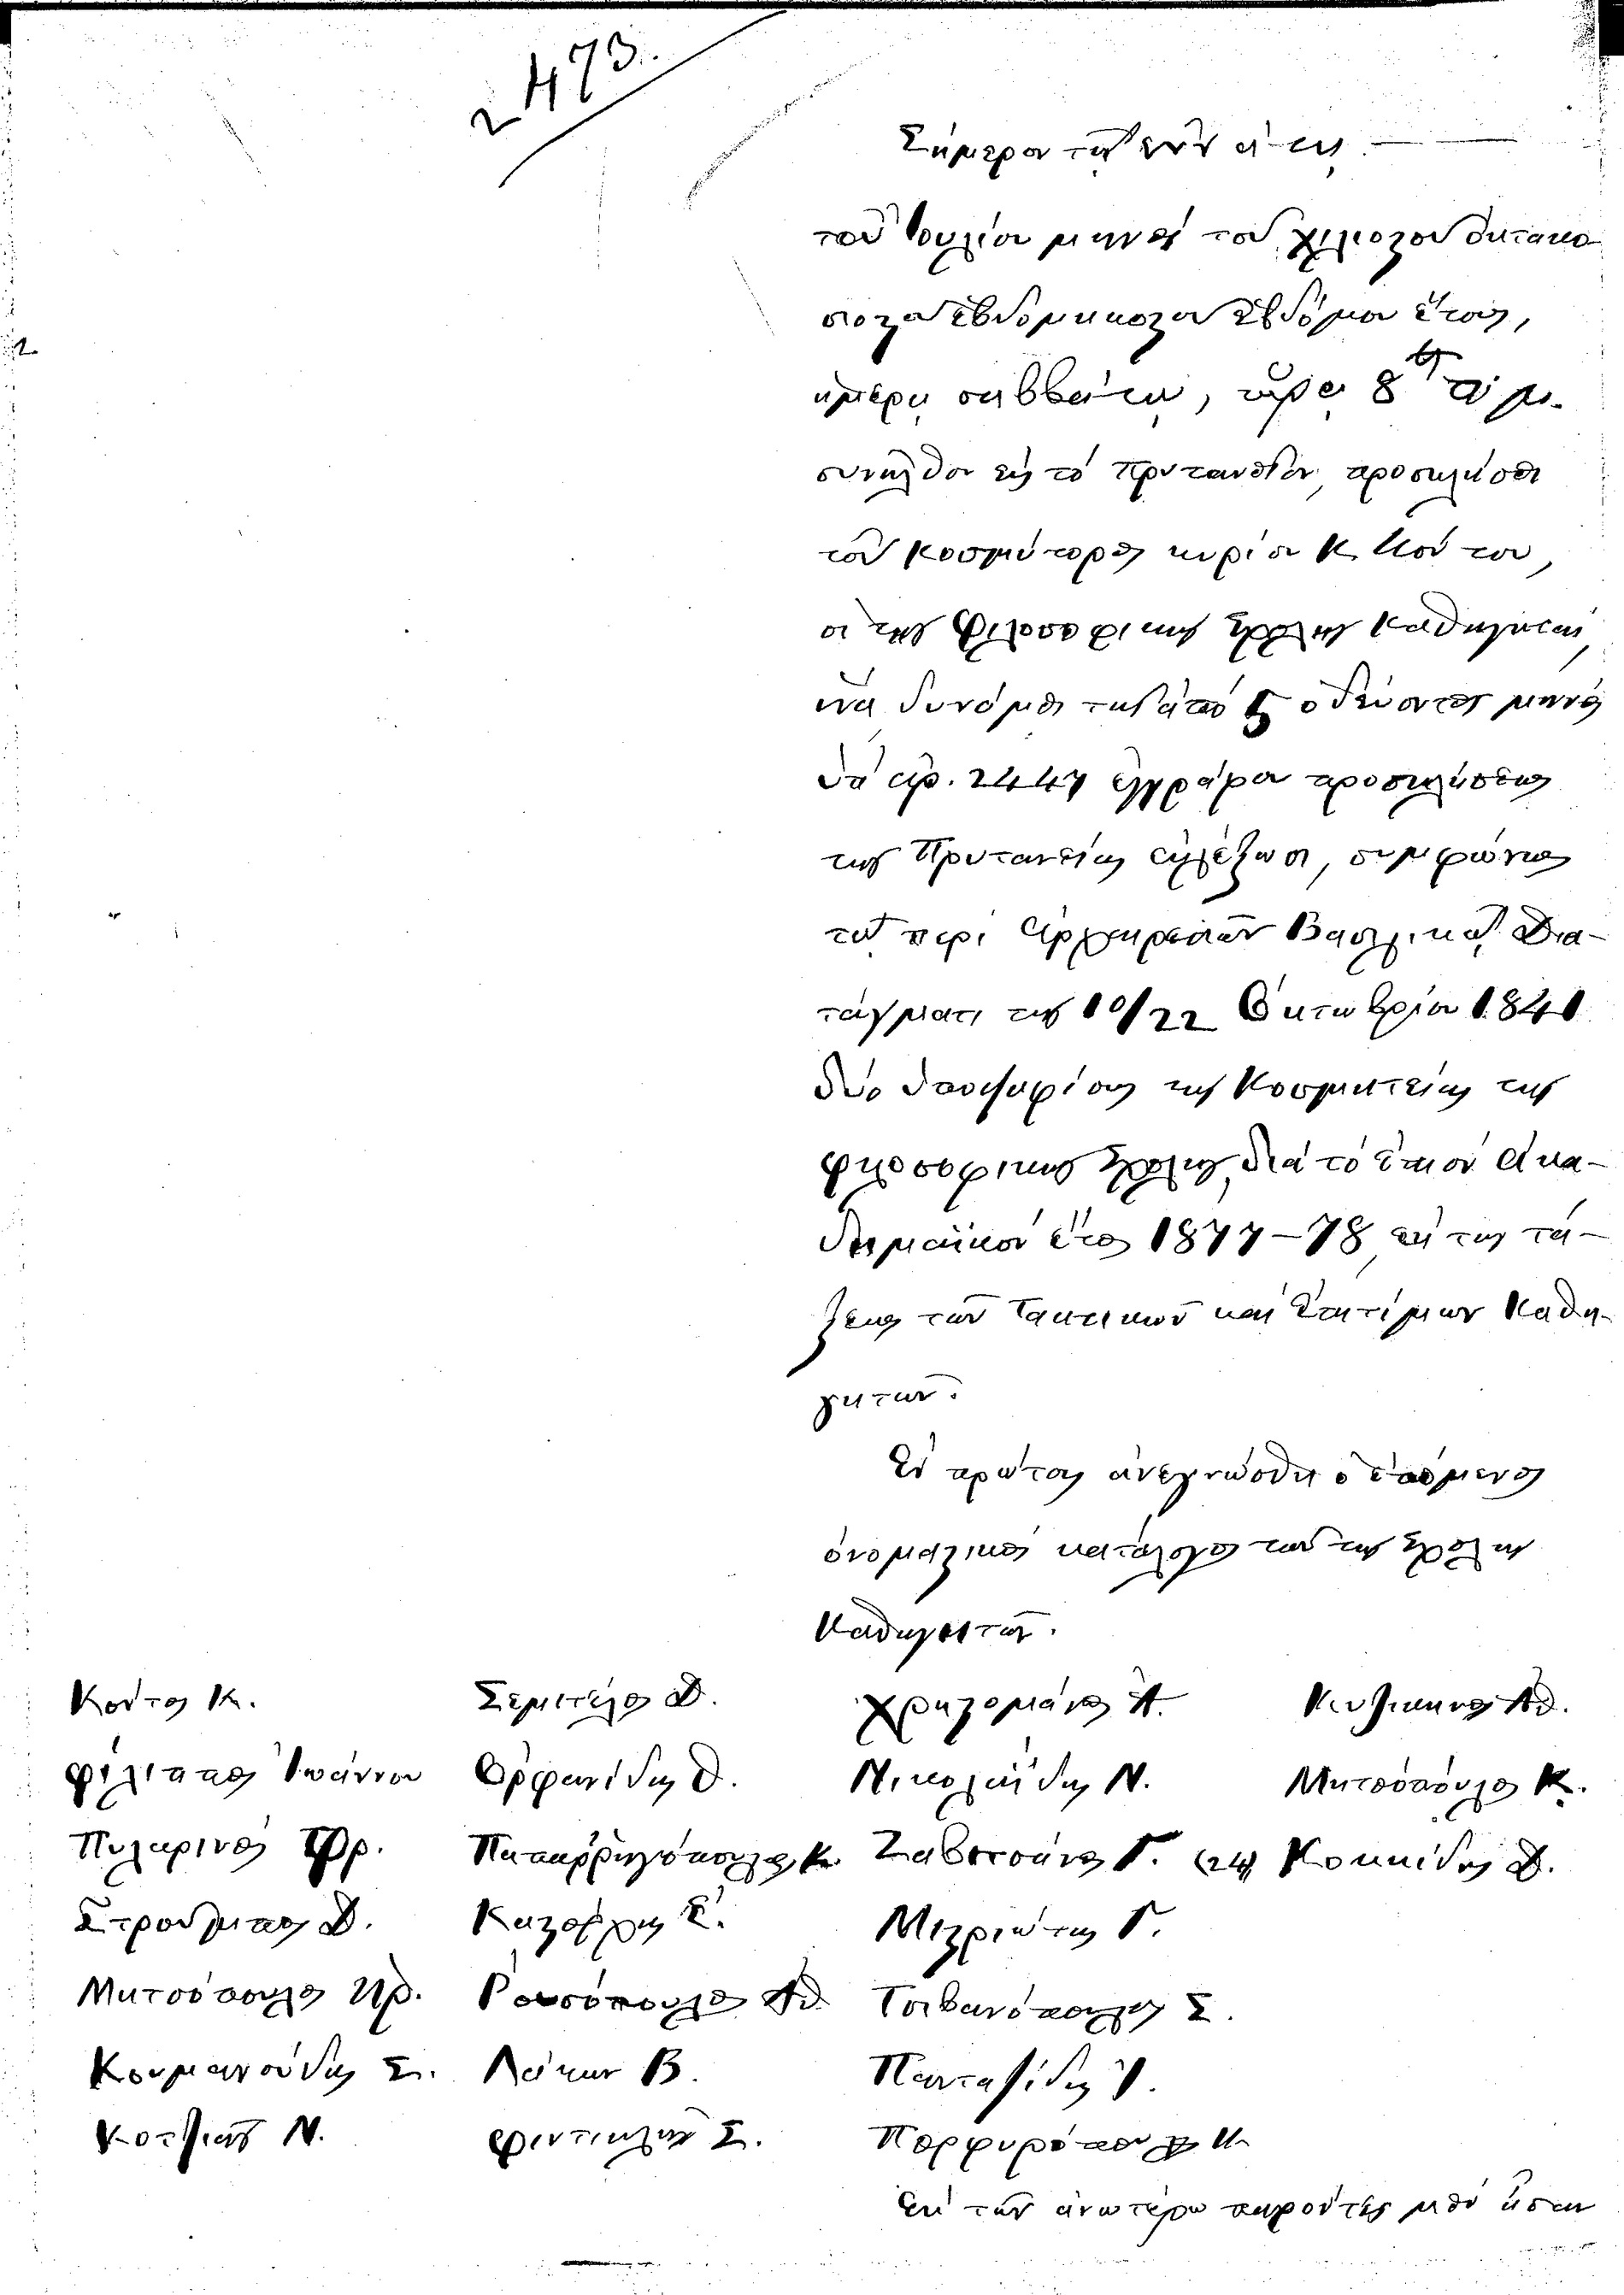 2473.
Σήμερον τῇ ἐννάτῃ
τοῦ Ἰουλίου μηνὸς τοῦ χιλιοστοῦ ὀκτακο-
σιοστοῦ ἑβδομηκοστοῦ ἑβδόμου ἔτους,
ἡμέρᾳ σαββάτῳ, ὥρᾳ 8ῃ π. μ.
συνῆλθον εἰς τὸ Πρυτανεῖον, προσκλήσει
τοῦ Κοσμήτορος κυρίου Κ. Κόντου,
οἱ τῆς Φιλοσοφικῆς Σχολῆς Καθηγηταί,
ἵνα δυνάμει τῆς ἀπὸ 5 ὁδεύοντος μηνὸς
ὑπ' ἀρ. 2447 ἐγγράφου προσκλήσεως
τῆς Πρυτανείας ἐκλέξωσι, συμφώνως
τῷ περὶ ἀρχαιρεσιῶν Βασιλικῷ Δια-
τάγματι τῆς 10/22 Ὀκτωβρίου 1841
δύο ὑποψηφίους τῆς Κοσμητείας τῆς
φιλοσοφικῆς Σχολῆς διὰ τὸ ἐπιὸν Ἀκα-
δημαϊκὸν ἔτος 1877-78, ἐκ τῆς τά-
ξεως τῶν Τακτικῶν καὶ Ἐπιτίμων Καθη-
γητῶν.
Ἐν πρώτοις ἀνεγνώσθη ὁ ἑπόμενος
ὀνομαστικὸς κατάλογος τῶν τῆς Σχολῆς
Καθηγητῶν.
Κόντος Κ. Σεμιτέλος Δ. Χρηστομάνος Ἀ. Κυζικηνὸς Ἀθ.
Φίλιππος Ἰωάννου Ὀρφανίδης Θ. Νικολαΐδης Ν. Μητσόπουλος Κ.
Πυλαρινὸς Φρ. Παπαρρηγόπουλος Κ. Ζαβιτσάνος Γ. (24) Κοκκίδης Δ.
Στρούμπος Δ. Καστόρχης Ε. Μιστριώτης Γ.
Μητσόπουλος Ἡρ. Ῥουσόπουλος Ἀθ. Τσιβανόπουλος Σ.
Κουμανούδης Σ. Λάκων Β. Πανταζίδης Ἰ.
Κοτζιᾶς Ν. Φιντικλῆς Σ. Πορφυρόπουλος Π.
Ἐκ τῶν ἀνωτέρω παρόντες μὲν ἦσαν